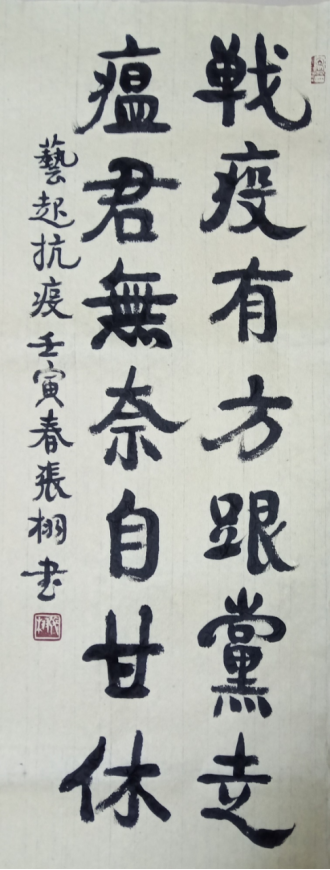 戦疫有方跟黨走
瘟君無奈自甘休
藝起抗疫壬寅春張栩书